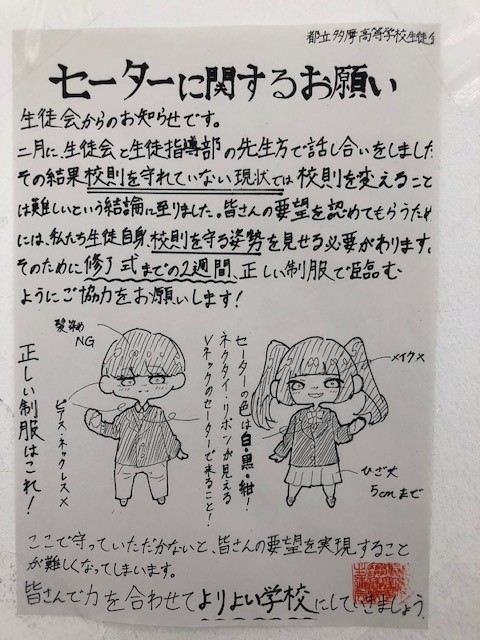 都立多摩高等学校生徒会
セーターに関するお願い
生徒会からのお知らせです。
二月に、生徒会と生徒指導部の先生方で話し合いをしました
その結果校則を守れていない現状では校則を変えること
は難しいという結論に至りました。皆さんの要望を認めてもらうため
には、私たち生徒自身、校則を守る姿勢を見せる必要があります。
そのために修了式までの2週間、正しい制服で臨む
ようにご協力をお願いします!
正しい制服はこれ!
髪染め
NG
ピアス・ネックレス×
セーターの色は白・黒・紺!
ネクタイ・リボンが見える
Vネックのセーターで来ること!
メイク×
ひざ丈
5cmまで
ここで守っていただかないと、皆さんの要望を実現すること
が難しくなってしまいます。
皆さんで力を合わせてよりよい学校にしていきましょう